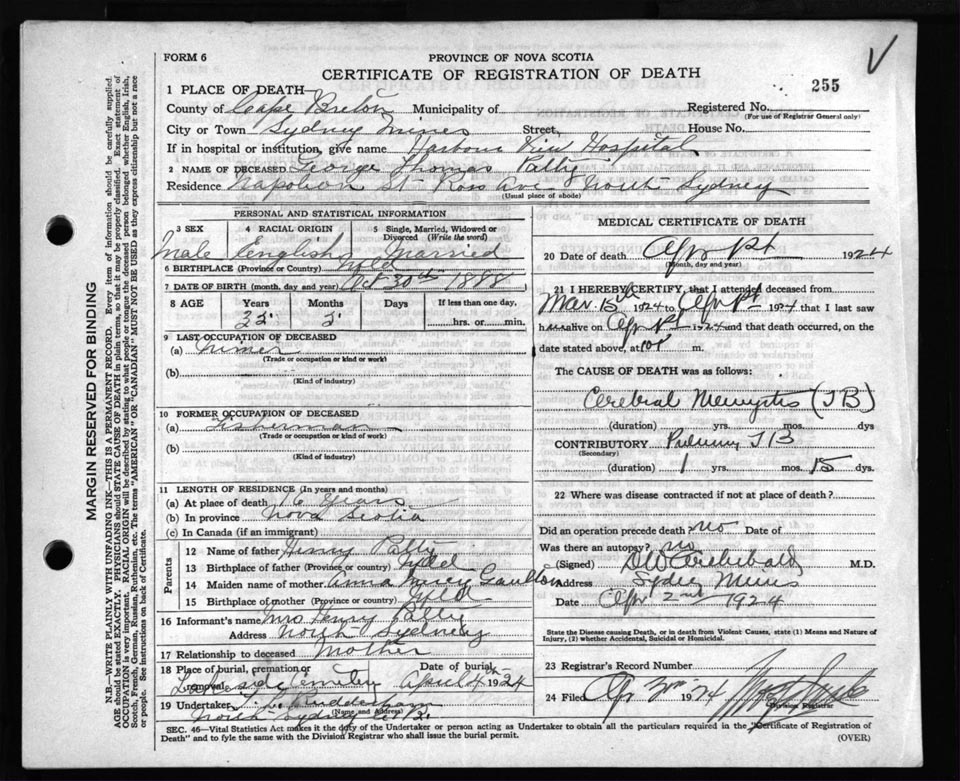 FORM 6
PROVINCE OF NOVA SCOTIA
CERTIFICATE OF REGISTRATION OF DEATH
255
1 PLACE OF DEATH
County of Cape Breton Municipality of
Registered No.
(For use of Registrar General only)
City or Town Sydney Mines Street, House No.
If in hospital or institution, give name Harbour View Hospital
2 NAME OF DECEASED George Thomas
Residence Napoleon St. Ross Ave North Sydney
(Usual place of abode)
PERSONAL AND STATISTICAL INFORMATION
3 SEX
4 RACIAL ORIGIN
5 Single, Married, Widowed or Divorced (Write the word)
Male English Married
6 BIRTHPLACE (Province or Country) Nfld
7 DATE OF BIRTH (month, day and year) Oct 30th 1888
8 AGE
Years
Months
Days
If less than one day,
......hrs. or ......min.
35
5
9 LAST OCCUPATION OF DECEASED
(a) Miner
(Trade or occupation or kind or work)
(b)
(Kind of industry)
10 FORMER OCCUPATION OF DECEASED
(a) Fisherman
(Trade or occupation or kind or work)
(b)
(Kind of industry)
11 LENGTH OF RESIDENCE (In years and months)
(a) At place of death 16 years
(b) In province Nova Scotia
(c) In Canada (if an immigrant)
Parents
12 Name of father Henry
13 Birthplace of father (Province or country) Nfld
14 Maiden name of mother Anna Mercy Gaulton
15 Birthplace of mother (Province or country) Nfld
16 Informant's name Mrs Henry
Address North Sydney
17 Relationship to deceased Mother
18 Place of burial, cremation or removal
Date of burial
Lakeside Cemetery April 4th 1924
19 Undertaker
(Name and Address)
North Sydney C.B.
MEDICAL CERTIFICATE OF DEATH
20 Date of death Apr 1st 1924
(Month, day and year)
21 I HEREBY CERTIFY, that I attended deceased from
Mar 15th 1924 to Apr 1st 1924 that I last saw
him alive on Apr 1st 1924 and that death occurred, on
date stated above, at m.
The CAUSE OF DEATH was as follows:
Cerebral (TB)
(duration) yrs. mos. dys
CONTRIBUTORY TB
(Secondary)
(duration) 1 yrs. mos. 15 dys.
22 Where was disease contracted if not at place of death?
Did an operation precede death no Date of
Was there an autopsy? no
(Signed) Archibald M.D.
Address Sydney Mines
Date Apr 2nd 1924
State the Disease causing Death, or in death from Violent Causes, state (1) Means and Nature of Injury, (2) whether Accidental, Suicidal or Homicidal.
23 Registrar's Record Number
24 Filed Apr 3rd 1924
Division Registrar
SEC. 46—Vital Statistics Act makes it the duty of the Undertaker or person acting as Undertaker to obtain all the particulars required in the "Certificate of Registration of
Death" and to fyle the same with the Division Registrar who shall issue the burial permit.
(OVER)
MARGIN RESERVED FOR BINDING
N.B.—WRITE PLAINLY WITH UNFADING INK—THIS IS A PERMANENT RECORD. Every item of information should be carefully supplied.
AGE should be stated EXACTLY. PHYSICIANS should STATE CAUSE OF DEATH in plain terms, so that it may be properly classified. Exact statement of
OCCUPATION is very important. RACIAL ORIGIN will be described by stating to what people or tongue the deceased person belonged, whether English, Irish,
Scotch, French, German, Russian, Ruthenian, etc. The terms "AMERICAN" or "CANADIAN" MUST NOT BE USED as they express citizenship but not a race
of people. See instructions on back of Certificate.